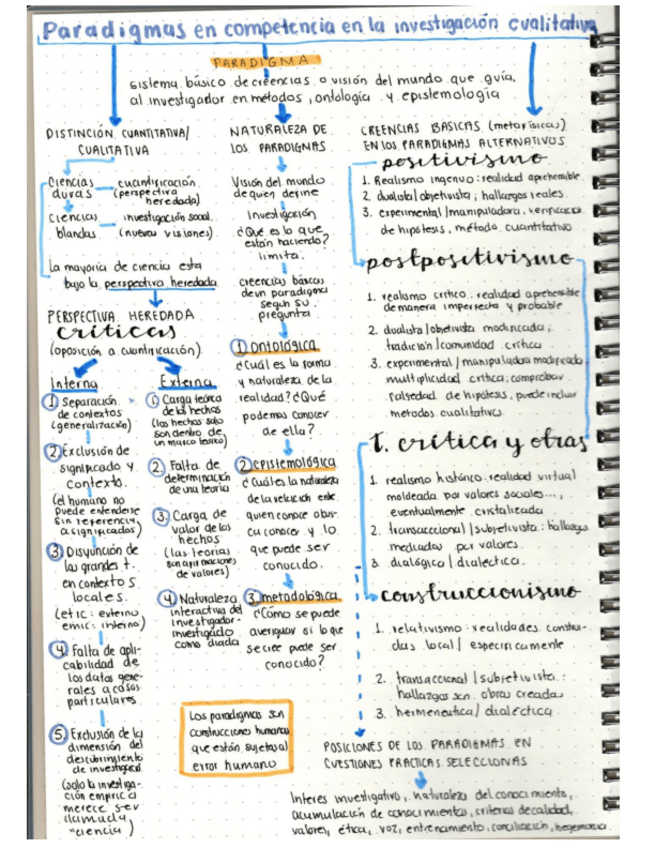 Paradigmas en competencia en la investigación cualitativa
PARADIGMA
sistema básico de creencias o visión del mundo que guía,
al investigador en métodos, ontología y epistemología
DISTINCIÓN CUANTITATIVA/
CUALITATIVA
Ciencias duras
cuantificación
(perspectiva
heredada)
Ciencias blandas
investigación social
(nuevas visiones)
La mayoría de ciencia esta
bajo la perspectiva heredada
PERSPECTIVA HEREDADA
críticas
(oposición a cuantificación)
Interna
1 Separación
de contextos
(generalización)
2 Exclusión de
significado y
contexto.
(el humano no
puede entenderse
sin referencia,
a significados)
3 Disyunción de
las grandes t.
en contextos
locales.
(etic: externo
emic: interno)
4 Falta de apli-
cabilidad de
los datos gene-
rales a casos
particulares
5 Exclusión de la
dimensión del
descubrimiento
de investigació.
(solo la investiga-
ción empírica
merece ser
llamada
"ciencia")
Externa
1. Carga teórica
de los hechos
(los hechos solo
son dentro de
un marco teórico)
2. Falta de
determinación
de una teoría
3. Carga de
valor de los
hechos
(las teorías
son afirmaciones
de valores)
4 Naturaleza
interactiva del
investigador-
investigado
como díada
NATURALEZA DE
LOS PARADIGMAS
Visión del mundo
de quien define
Investigación
¿Qué es lo que
están haciendo?
limita.
creencias básicas
de un paradigma
según su
pregunta
1 ontológica
¿Cuál es la forma
y naturaleza de la
realidad? ¿Qué
podemos conocer
de ella?
2 epistemológica
¿Cuál es la naturaleza
de la relación entre
quien conoce o bus-
ca conocer y lo
que puede ser
conocido.
3. metodológica
¿Cómo se puede
averiguar si lo que
se cree puede ser
conocido?
Los paradigmas son
construcciones humanas
que están sujetas al
error humano
CREENCIAS BÁSICAS (metafísicas)
EN LOS PARADIGMAS ALTERNATIVOS
positivismo
1. Realismo ingenuo: realidad aprehensible
2. dualista/objetivista; hallazgos reales
3. experimental/manipuladora, verificación
de hipótesis, método cuantitativo
postpositivismo
1. realismo crítico: realidad aprehensible
de manera imperfecta y probable
2. dualista/objetivista modificada;
tradición/comunidad crítica
3. experimental/manipuladora modificada
multiplicidad crítica; comprobar
falsedad de hipótesis, puede incluir
métodos cualitativos
T. crítica y otras
1. realismo histórico: realidad virtual
moldeada por valores sociales...,
eventualmente cristalizada
2. transaccional/subjetivista: hallazgos
mediados por valores.
3. dialógica/dialectica.
construccionismo
1. relativismo: realidades construi-
das local/específicamente
2. transaccional/subjetivista:
hallazgos son obras creadas
3. hermenéutica/dialéctica
POSICIONES DE LOS PARADIGMAS EN
CUESTIONES PRÁCTICAS SELECCIONAS
Interes investigativo, naturaleza del conocimiento,
acumulación de conocimientos, criterios de calidad,
valores, ética, voz, entrenamiento, conciliación, hegemonía